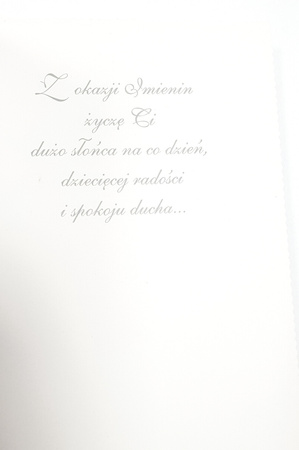 Z okazji Imienin
życzę Ci
dużo słońca na co dzień,
dziecięcej radości
i spokoju ducha...